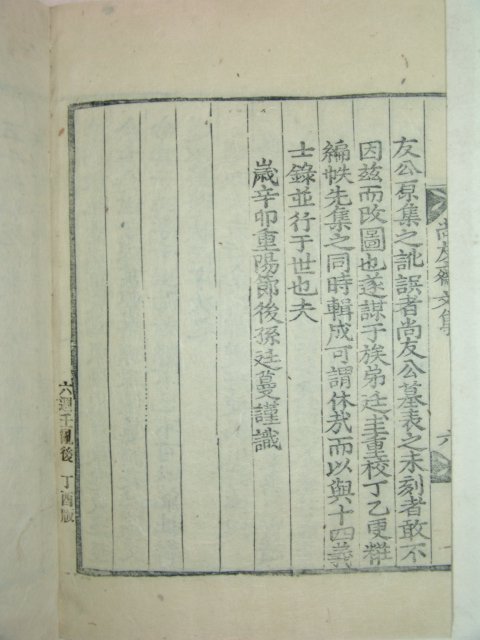 尚友齋文集
六
友公原集之訛誤者尚友公墓表之未刻者敢不
因玆而改圖也遂謀于族弟廷圭重校丁乙更粧
編帙先集之同時輯成可謂休哉而以與十四義
士錄並行于世也夫
歲辛卯重陽節後孫廷蔓謹識
後 丁酉版